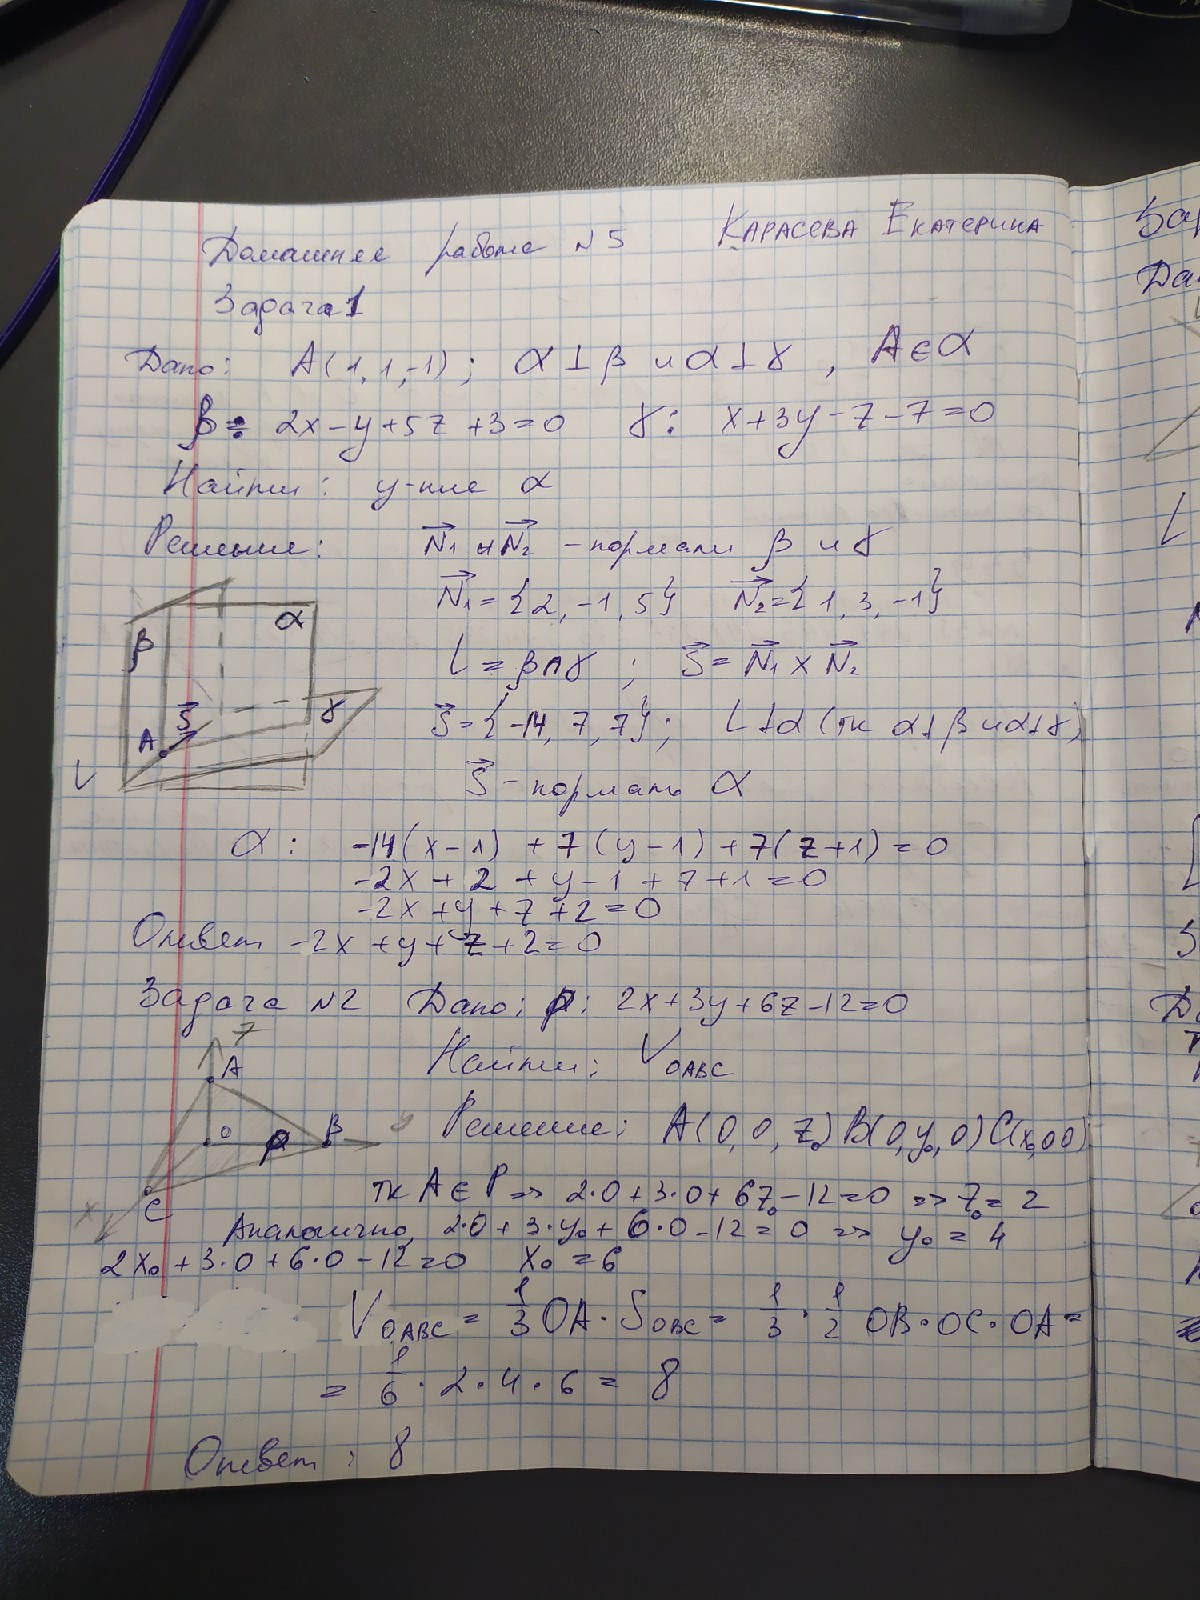 Домашнее работа №5 КАРАСЕВА ЕКАТЕРИНА
Задача 1
Дано: A(1,1,-1); α⊥β и α⊥γ, A∈α
β: 2x-y+5z+3=0 γ: x+3y-z-7=0
Найти: у-ние α
Решение: N₁ и N₂ - нормали β и γ
N₁={2,-1,5} N₂={1,3,-1}
L=β∩γ; S=N₁×N₂
S={-14,7,7}; L⊥α (тк α⊥β и α⊥γ)
S - нормаль α
β α γ S A L
α: -14(x-1)+7(y-1)+7(z+1)=0
-2x+2+y-1+z+1=0
-2x+y+z+2=0
Ответ -2x+y+z+2=0
Задача №2 Дано: p: 2x+3y+6z-12=0
Найти: V_OABC
Решение: A(0,0,z₀) B(0,y₀,0) C(x₀,0,0)
z A O B p C x
тк A∈P => 2·0+3·0+6z₀-12=0 => z₀=2
Аналогично, 2·0+3·y₀+6·0-12=0 => y₀=4
2x₀+3·0+6·0-12=0 x₀=6
V_OABC = 1/3 OA·S_OBC = 1/3·1/2 OB·OC·OA=
= 1/6·2·4·6 = 8
Ответ: 8
Да
L